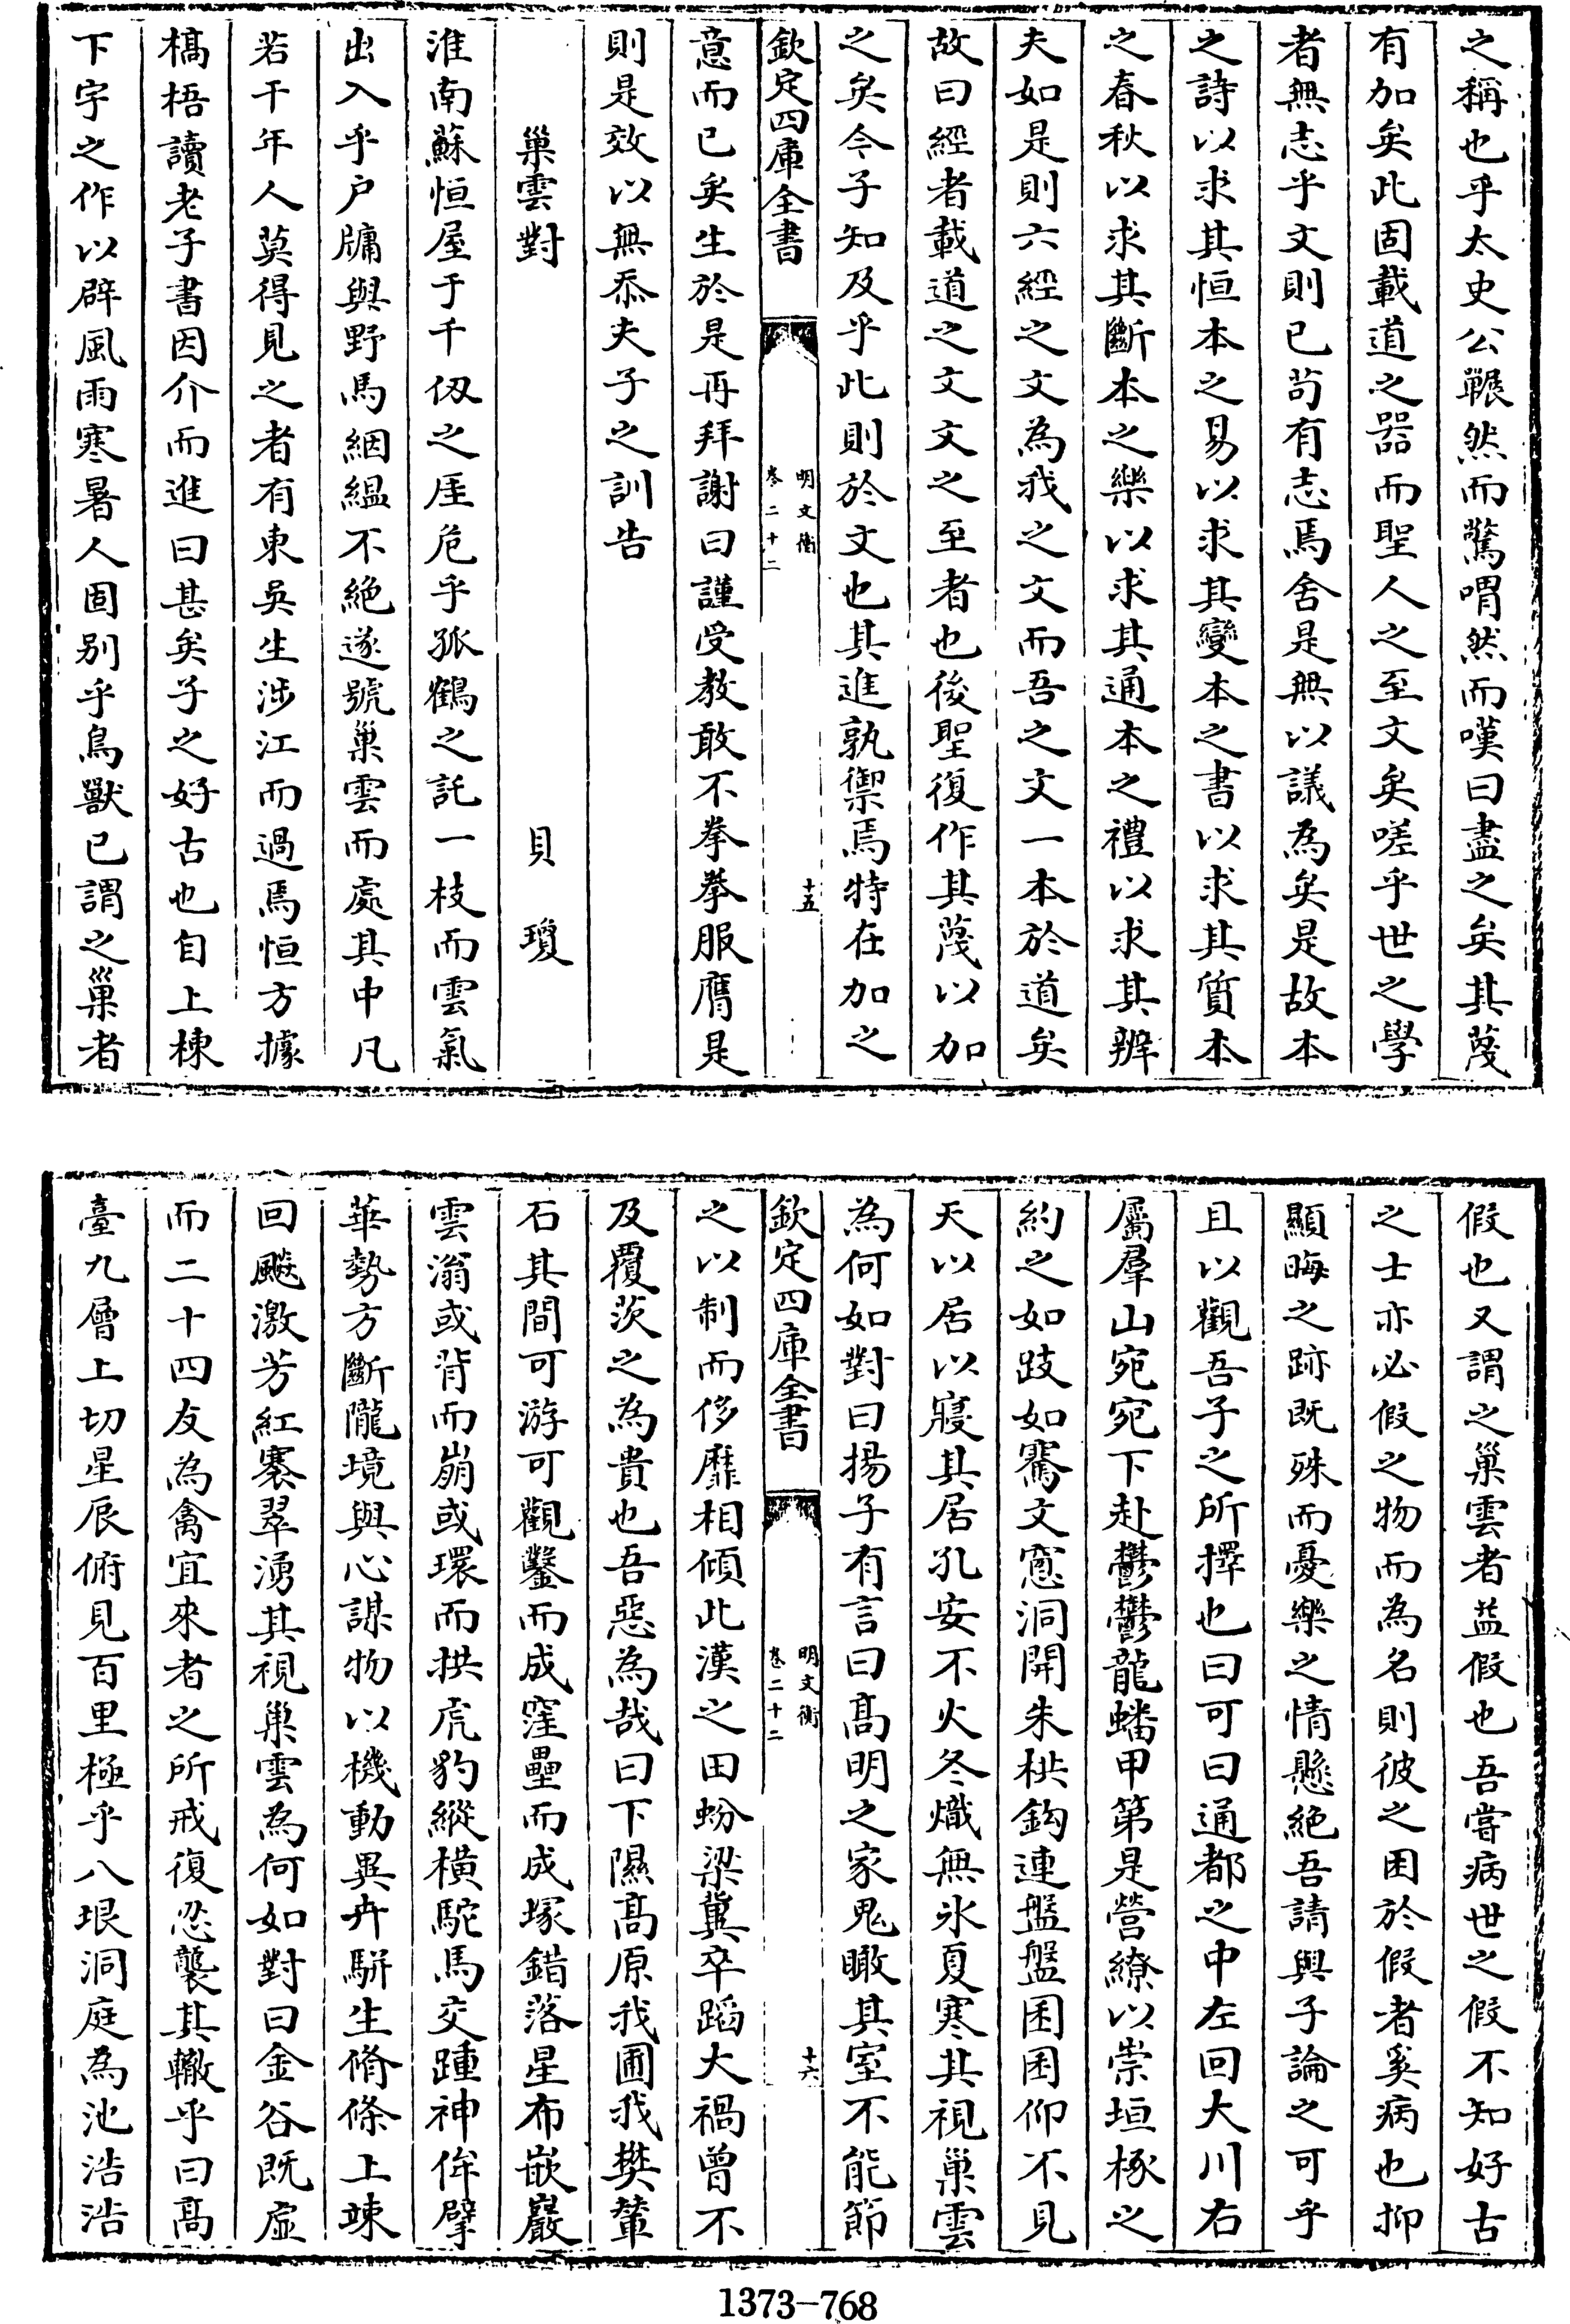 之稱也乎太史公冁然而驚喟然而嘆曰盡之矣其蔑
有加矣此固載道之器而聖人之至文矣嗟乎世之學
者無志乎文則已茍有志焉舍是無以議為矣是故本
之詩以求其恒本之易以求其變本之書以求其質本
之春秋以求其斷本之樂以求其通本之禮以求其辨
夫如是則六經之文為我之文而吾之文一本於道矣
故曰經者載道之文文之至者也後聖復作其蔑以加
之矣今子知及乎此則於文也其進孰禦焉特在加之
欽定四庫全書
明文衡
卷二十二
十五
意而已矣生於是再拜謝曰謹受教敢不拳拳服膺是
則是效以無忝夫子之訓告
巢雲對
貝瓊
淮南蘇恒屋于千仭之厓危乎孤鶴之託一枝而雲氣
出入乎户牖與野馬絪縕不絶遂號巢雲而處其中凡
若干年人莫得見之者有東吳生涉江而過焉恒方據
槁梧讀老子書因介而進曰甚矣子之好古也自上棟
下宇之作以辟風雨寒暑人固别乎鳥獸已謂之巢者
假也又謂之巢雲者葢假也吾嘗病世之假不知好古
之士亦必假之物而為名則彼之困於假者奚病也抑
顯晦之跡既殊而憂樂之情懸絶吾請與子論之可乎
且以觀吾子之所擇也曰可曰通都之中左回大川右
屬羣山宛宛下赴鬱鬱龍蟠甲第是營繚以崇垣椓之
約之如跂如騫文窻洞開朱栱鈎連盤盤囷囷仰不見
天以居以寢其居孔安不火冬熾無氷夏寒其視巢雲
為何如對曰揚子有言曰髙明之家鬼瞰其室不能節
欽定四庫全書
明文衡
卷二十二
十六
之以制而侈靡相傾此漢之田蚡梁冀卒蹈大禍曾不
及覆茨之為貴也吾惡為哉曰下隰髙原我圃我樊輦
石其間可游可觀鑿而成窪壘而成塚錯落星布嵌巖
雲滃或背而崩或環而拱虎豹縱横駝馬交踵神侔擘
華勢方斷隴境與心謀物以機動異卉駢生脩條上竦
回飈激芳紅褰翠湧其視巢雲為何如對曰金谷既虛
而二十四友為禽宜來者之所戒復忍襲其轍乎曰髙
臺九層上切星辰俯見百里極乎八垠洞庭為池浩浩
1373—768